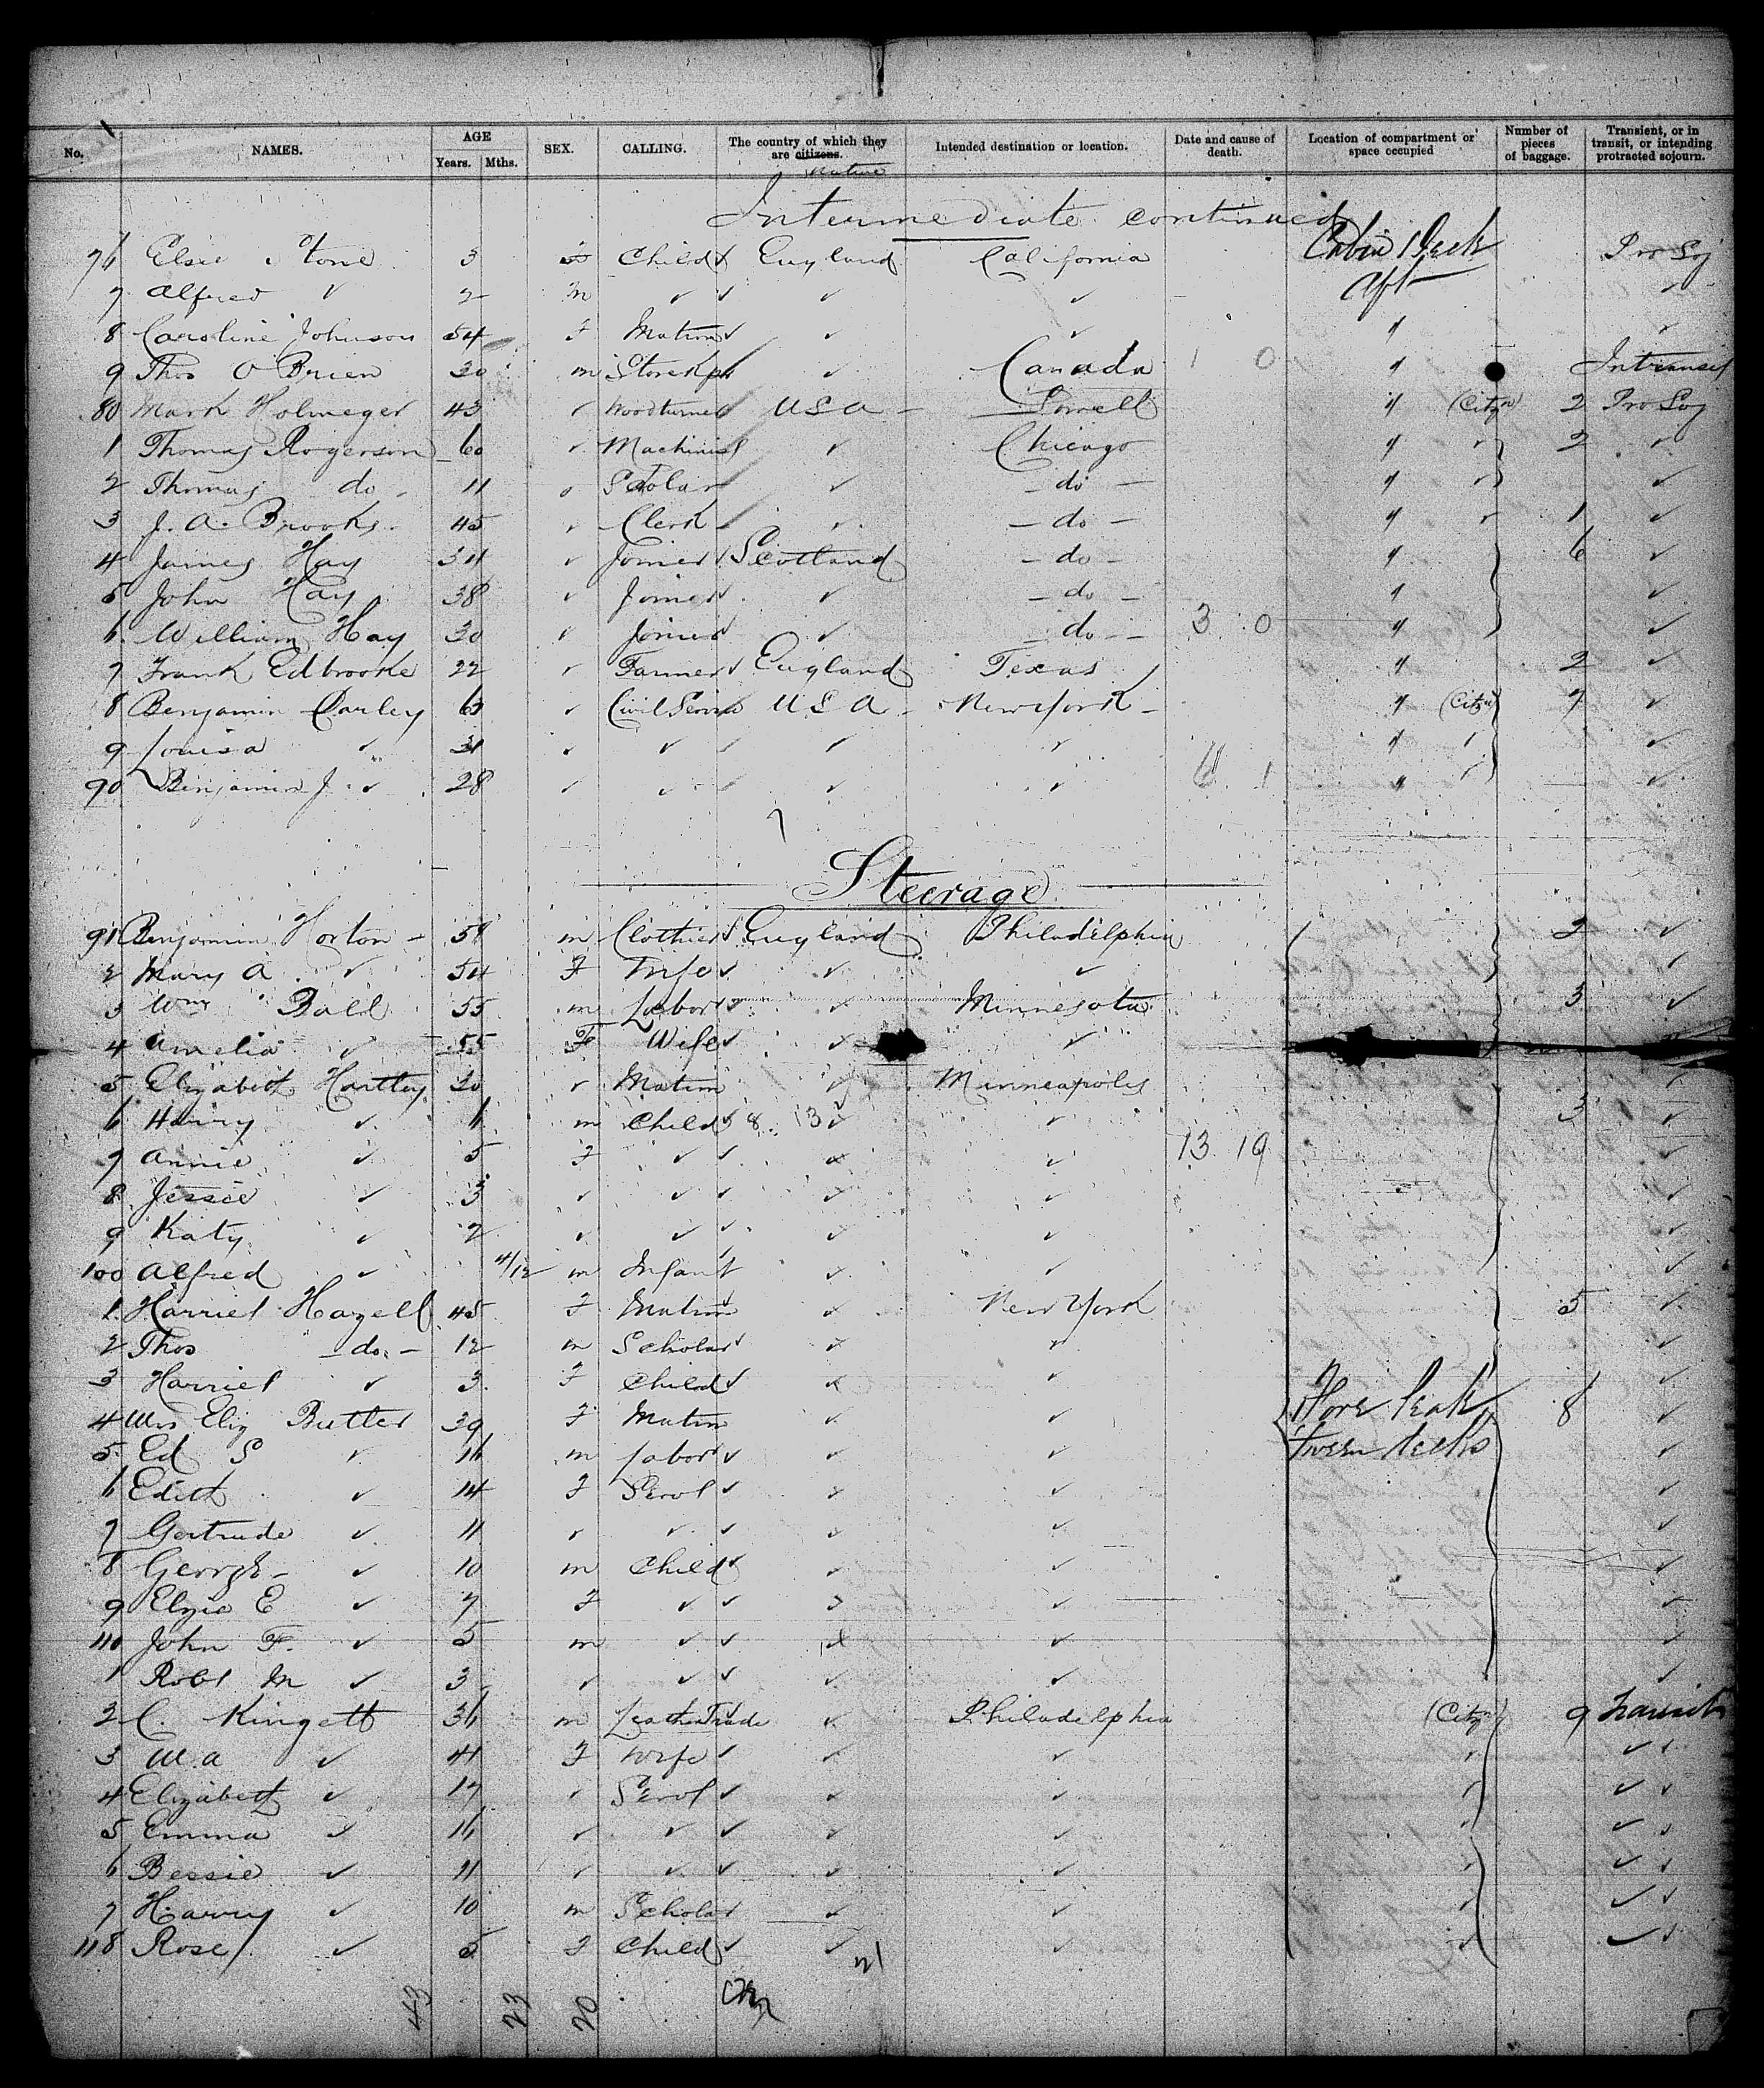 No. NAMES. AGE Years. Mths. SEX. CALLING. The country of which they are citizens. native Intended destination or location. Date and cause of death. Location of compartment or space occupied Number of pieces of baggage. Transient, or in transit, or intending protracted sojourn.
Intermediate continued
76 Elsie Stone 3 Child ✓ England California Cabin Deck Pro Soj
7 Alfred ✓ 2 m ✓ ✓ ✓ ✓ Aft ✓
8 Caroline Johnson 54 F Matron ✓ ✓ ✓ " ✓
9 Thos O'Brien 30 m Storekpr ✓ Canada 1 0 " Intransit
80 Mark Holmeger 43 ✓ Woodturner USA Lowell " (Citzn) 2 Pro Soj
1 Thomas Rogerson 60 ✓ Machinist ✓ Chicago " ✓ 2 ✓
2 Thomas do 11 Scholar ✓ - do - " ✓ ✓
3 J. A. Brooks 45 ✓ Clerk ✓ - do - " ✓ 1 ✓
4 James Hay 34 ✓ Joiner Scotland - do - " 6 ✓
5 John Hay 38 ✓ Joiner ✓ - do - " ✓
6 William Hay 30 ✓ Joiner ✓ - do - 3 0 " ✓
7 Frank Edbrooke 22 ✓ Farmer ✓ England Texas " 2 ✓
8 Benjamin Darley 63 ✓ Civil Servis USA - New York - " (Citzn) 7 ✓
9 Louisa ✓ 31 ✓ ✓ ✓ ✓ ✓ " ✓ ✓
90 Benjamin J. ✓ 28 ✓ ✓ ✓ ✓ ✓ 1 " ✓ ✓
Steerage
91 Benjamin Horton - m Clothier ✓ England Philadelphia 2 ✓
2 Mary A ✓ 54 F Wife ✓ ✓ ✓ ✓
3 Wm Ball 55 m Labor ✓ ✓ Minnesota 3 ✓
4 Amelia ✓ 55 F Wife ✓ ✓ ✓
5 Elizabeth Hartley 30 ✓ Matron ✓ Minneapolis ✓
6 Harry ✓ 6 m Child ✓ 8 13 ✓ ✓ 3 ✓
7 Annie ✓ 5 F ✓ ✓ ✓ ✓ 13 19 ✓
8 Jessie ✓ 3 ✓ ✓ ✓ ✓ ✓ ✓
9 Katy ✓ 2 ✓ ✓ ✓ ✓ ✓ ✓
100 Alfred ✓ 4/12 m Infant ✓ ✓ ✓
1 Harriet Hazell 45 F Matron ✓ New York 5 ✓
2 Thos - do - 12 m Scholar ✓ ✓ ✓ ✓
3 Harriet ✓ 3 F Child ✓ ✓ ✓ ✓
4 Mrs Eliz Butler 39 F Matron ✓ ✓ Fore Peak 8 ✓
5 Ed S ✓ 16 m Labor ✓ ✓ ✓ Tween Decks ✓
6 Edith ✓ 14 F Servt ✓ ✓ ✓ ✓
7 Gertrude ✓ 11 ✓ ✓ ✓ ✓ ✓ ✓
8 George - ✓ 10 m Child ✓ ✓ ✓ ✓
9 Elzie E ✓ 7 F ✓ ✓ ✓ ✓ ✓
110 John F. ✓ 5 m ✓ ✓ ✓ ✓ ✓
1 Robt M ✓ 3 ✓ ✓ ✓ ✓ ✓ ✓
2 C. Kingett 36 m Leather Trade ✓ Philadelphia (Citzn) 9 Transit
3 M.A ✓ 41 F Wife ✓ ✓ ✓ ✓ ✓ ✓
4 Elizabeth ✓ 17 ✓ Servt ✓ ✓ ✓ ✓ ✓ ✓
5 Emma ✓ 16 ✓ ✓ ✓ ✓ ✓ ✓ ✓ ✓
6 Bessie ✓ 11 ✓ ✓ ✓ ✓ ✓ ✓ ✓ ✓
7 Harry ✓ 10 m Scholar ✓ ✓ ✓ ✓ ✓
118 Rose ✓ 5 F Child ✓ ✓ ✓ ✓ ✓ ✓
21
43 23 20